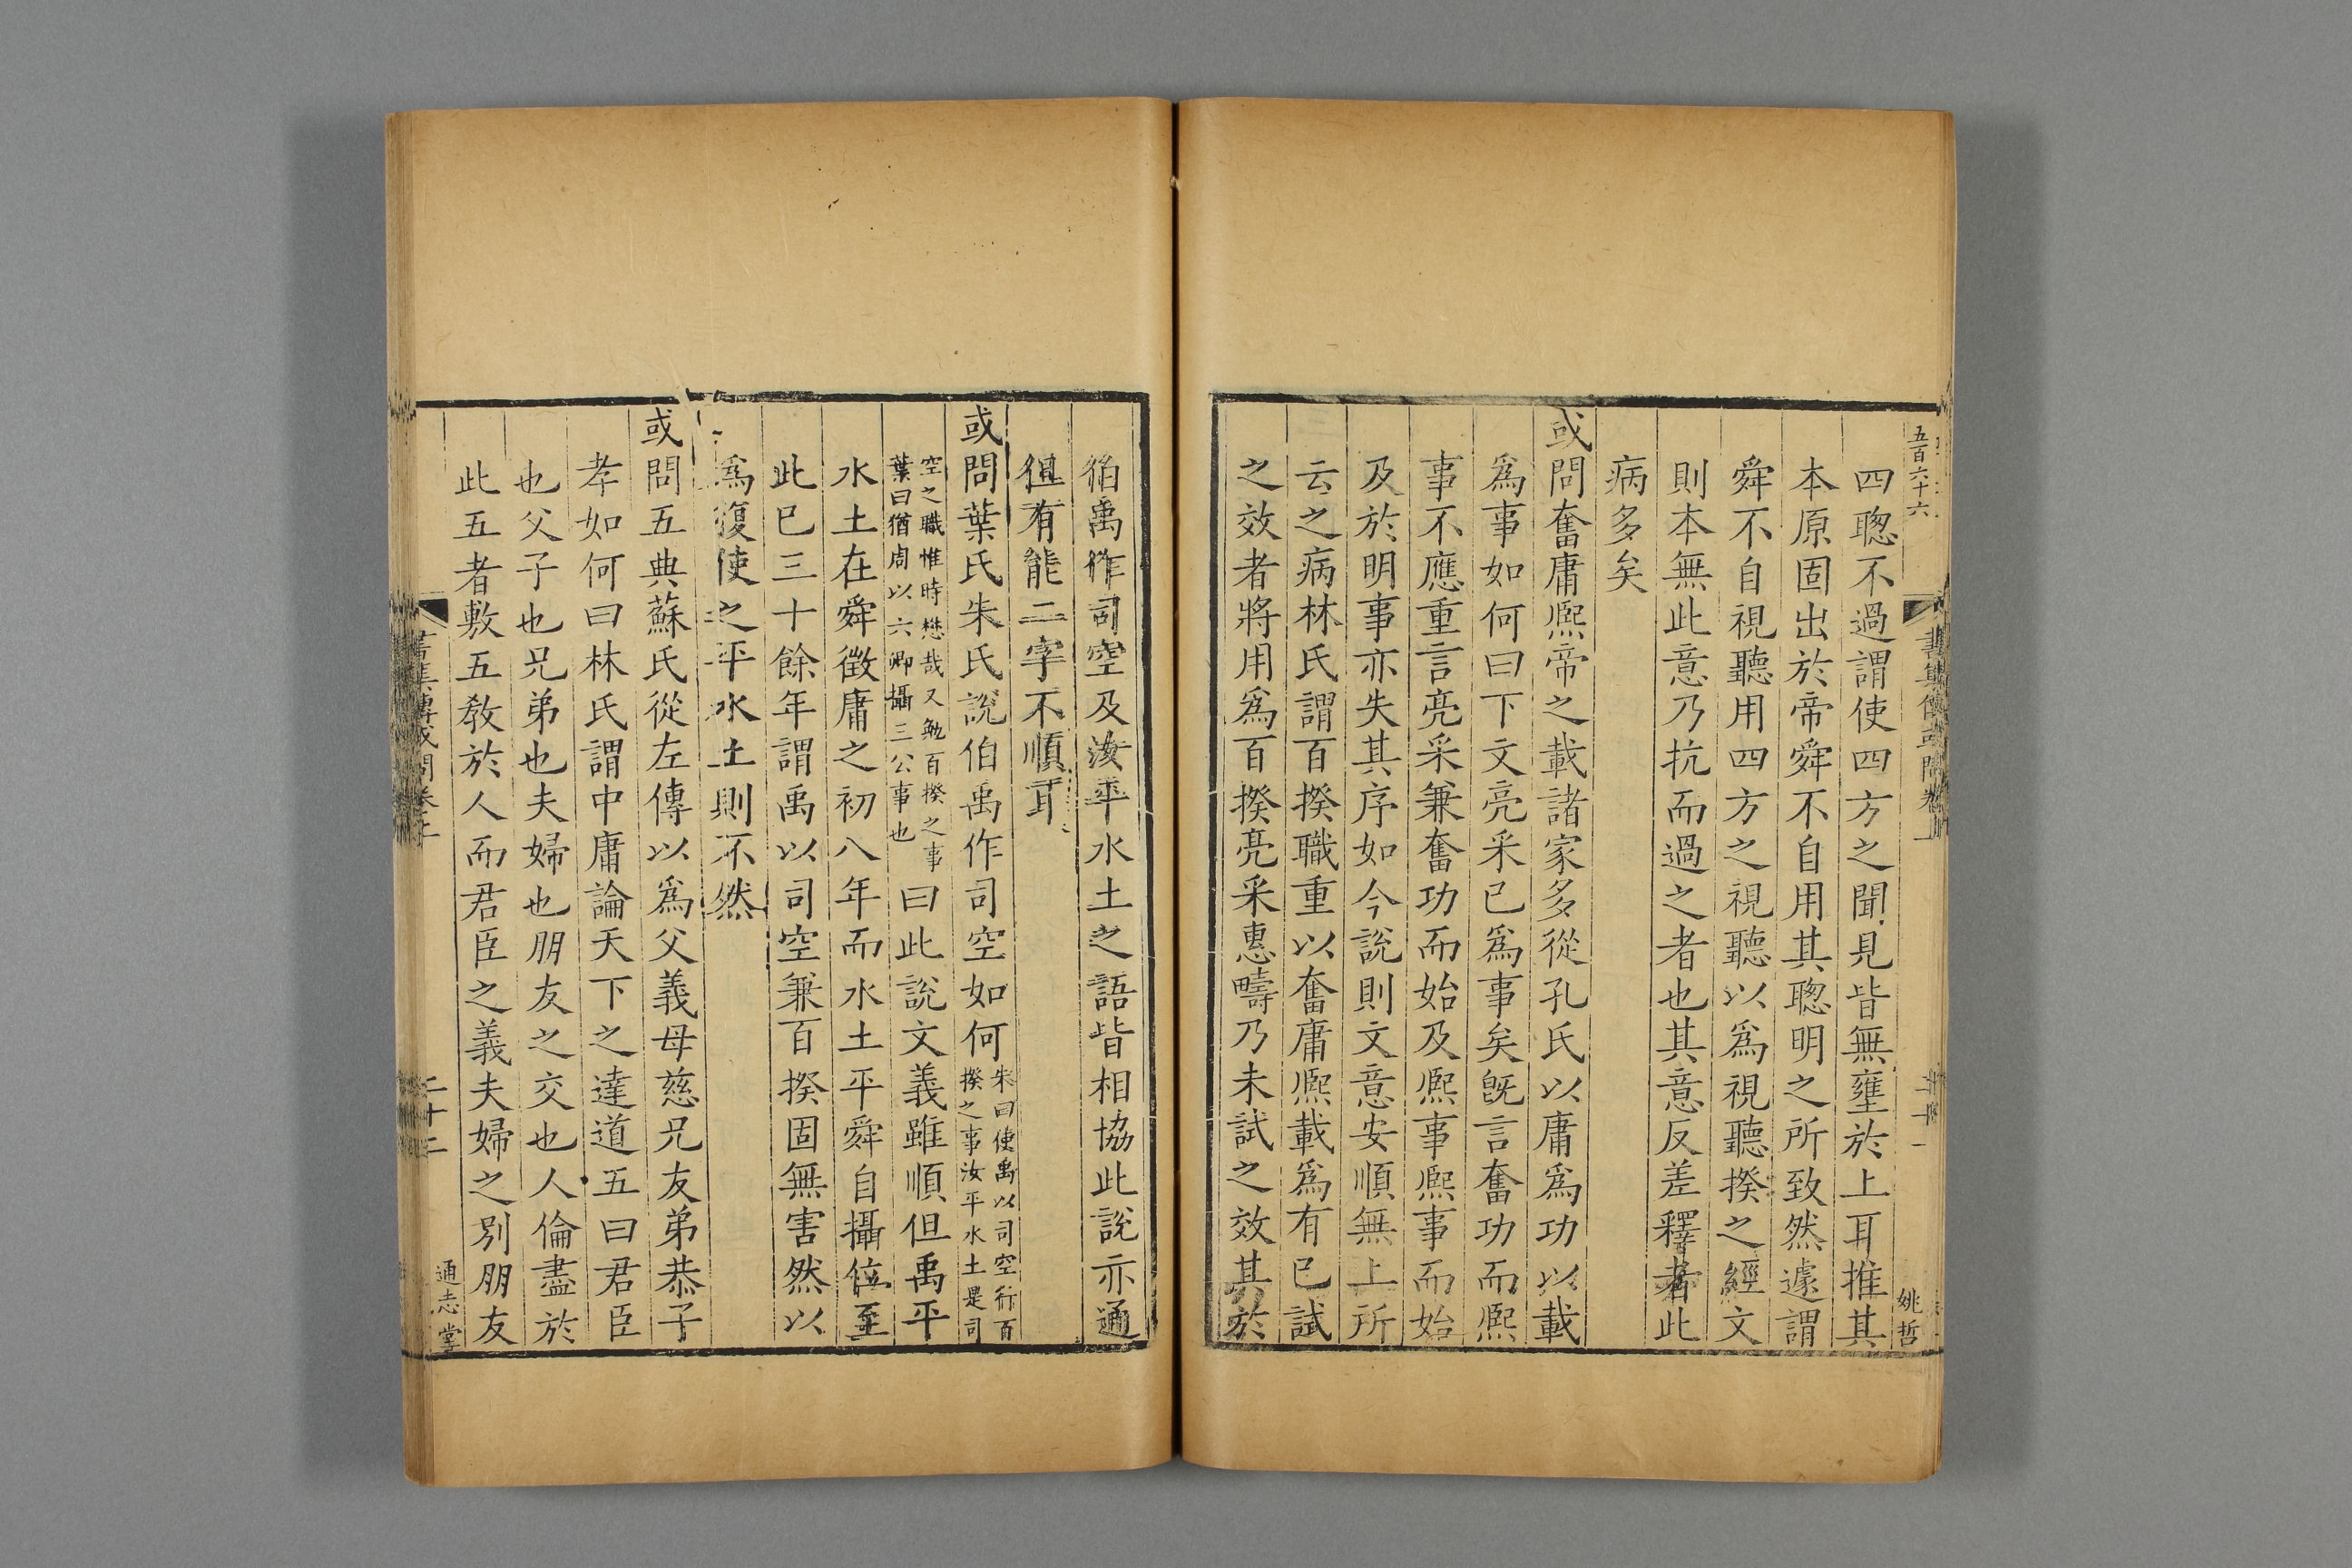 五百六十六
姚哲
四聰不過謂使四方之聞見皆無壅於上耳推其
本原固出於帝舜不自用其聰明之所致然遽謂
舜不自視聽用四方之視聽以爲視聽揆之經文
則本無此意乃抗而過之者也其意反差釋者此
病多矣
或問奮庸熈帝之載諸家多從孔氏以庸爲功以載
爲事如何曰下文亮采已爲事矣旣言奮功而熈
事不應重言亮采兼奮功而始及熈事熈事而始
及於明事亦失其序如今說則文意安順無上所
云之病林氏謂百揆職重以奮庸熈載爲有已試
之效者將用爲百揆亮采惠疇乃未試之效其於
伯禹作司空及汝平水土之語皆相協此說亦通
但有能二字不順耳
或問葉氏朱氏說伯禹作司空如何朱曰使禹以司空行百
揆之事汝平水土是司
空之職惟時懋哉又勉百揆之事
葉曰猶周以六卿攝三公事也曰此說文義雖順但禹平
水土在舜徵庸之初八年而水土平舜自攝位至
此已三十餘年謂禹以司空兼百揆固無害然以
爲復使之平水土則不然
或問五典蘇氏從左傳以爲父義母慈兄友弟恭子
孝如何曰林氏謂中庸論天下之達道五曰君臣
也父子也兄弟也夫婦也朋友之交也人倫盡於
此五者敷五敎於人而君臣之義夫婦之別朋友
書集傳或問卷上
二十二
通志堂